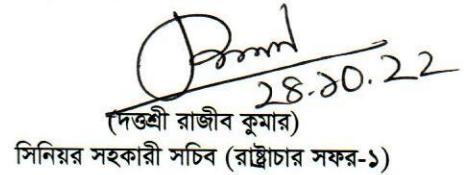 28.10.22
(দণ্ডশ্রী রাজীব কুমার)
সিনিয়র সহকারী সচিব (রাষ্ট্রাচার সফর-১)